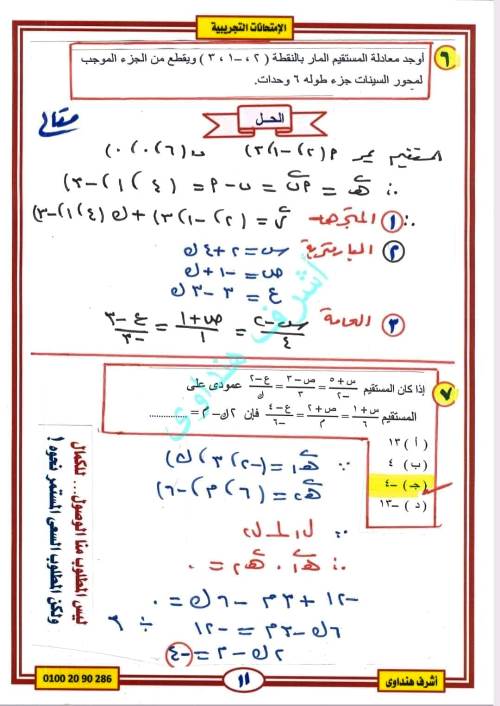 الإمتحانات التجريبية
٦ أوجد معادلة المستقيم المار بالنقطة ( ٢ ، -١ ، ٣ ) ويقطع من الجزء الموجب
لمحور السينات جزء طوله ٦ وحدات.
الحل
مقالى
المستقيم يمر م(٢، -١، ٣) ن(٦، ٠، ٠)
∴ هـ = م ن = ن - م = (٤، ١، -٣)
∴ ١ المتجهة ر = (٢، -١، ٣) + ك(٤، ١، -٣)
٢ البارمترية س = ٢ + ٤ك
ص = -١ + ك
ع = ٣ - ٣ك
٣ العامة (س-٢)/٤ = (ص+١)/١ = (ع-٣)/-٣
أشرف هنداوى
٧ إذا كان المستقيم (س+٥)/-٢ = (ص-٣)/٣ = (ع-٢)/ك عمودى على
المستقيم (س+١)/٦ = (ص+٢)/م = (ع-٤)/-٦ فإن ٢ك-م = ............
( أ ) ١٣
( ب ) ٤
( جـ ) -٤
( د ) -١٣
∵ هـ١ = (-٢، ٣، ك)
هـ٢ = (٦، م، -٦)
∵ ل١ ⊥ ل٢
∴ هـ١ . هـ٢ = ٠
-١٢ + ٣م - ٦ك = ٠
٦ك - ٣م = -١٢ ÷ ٣
٢ك - م = -٤
ليس المطلوب منا الوصول... للكمال
ولكن المطلوب السعى المستمر نحوه !
0100 20 90 286
١١
أشرف هنداوى